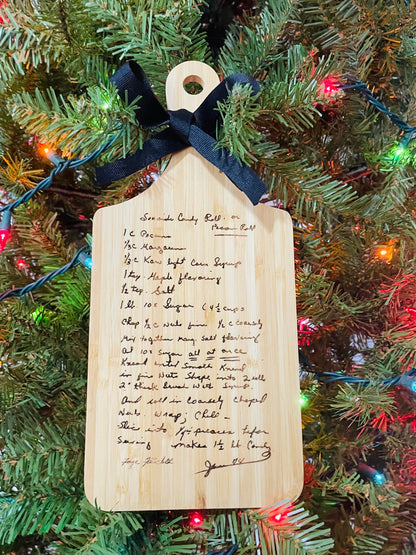 Candy Roll - or
Pecan Roll
1 C Pecans
⅓ C Margarine
⅓ C Karo light Corn Syrup
1 tsp Maple flavoring
½ tsp. Salt
1 lb 10x Sugar (4½ cups
Chop ½ C nuts fine ½ C coarsely
Mix together marg salt flavoring
Add 10x Sugar all at once
Knead until Smooth Knead
in fine Nuts Shape into 2 rolls
2" thick brush with Syrup.
And roll in Coarsely Choped
Nuts. Wrap; Chill -
Slice into ¼" pieces before
Serving makes 1½ lb Candy